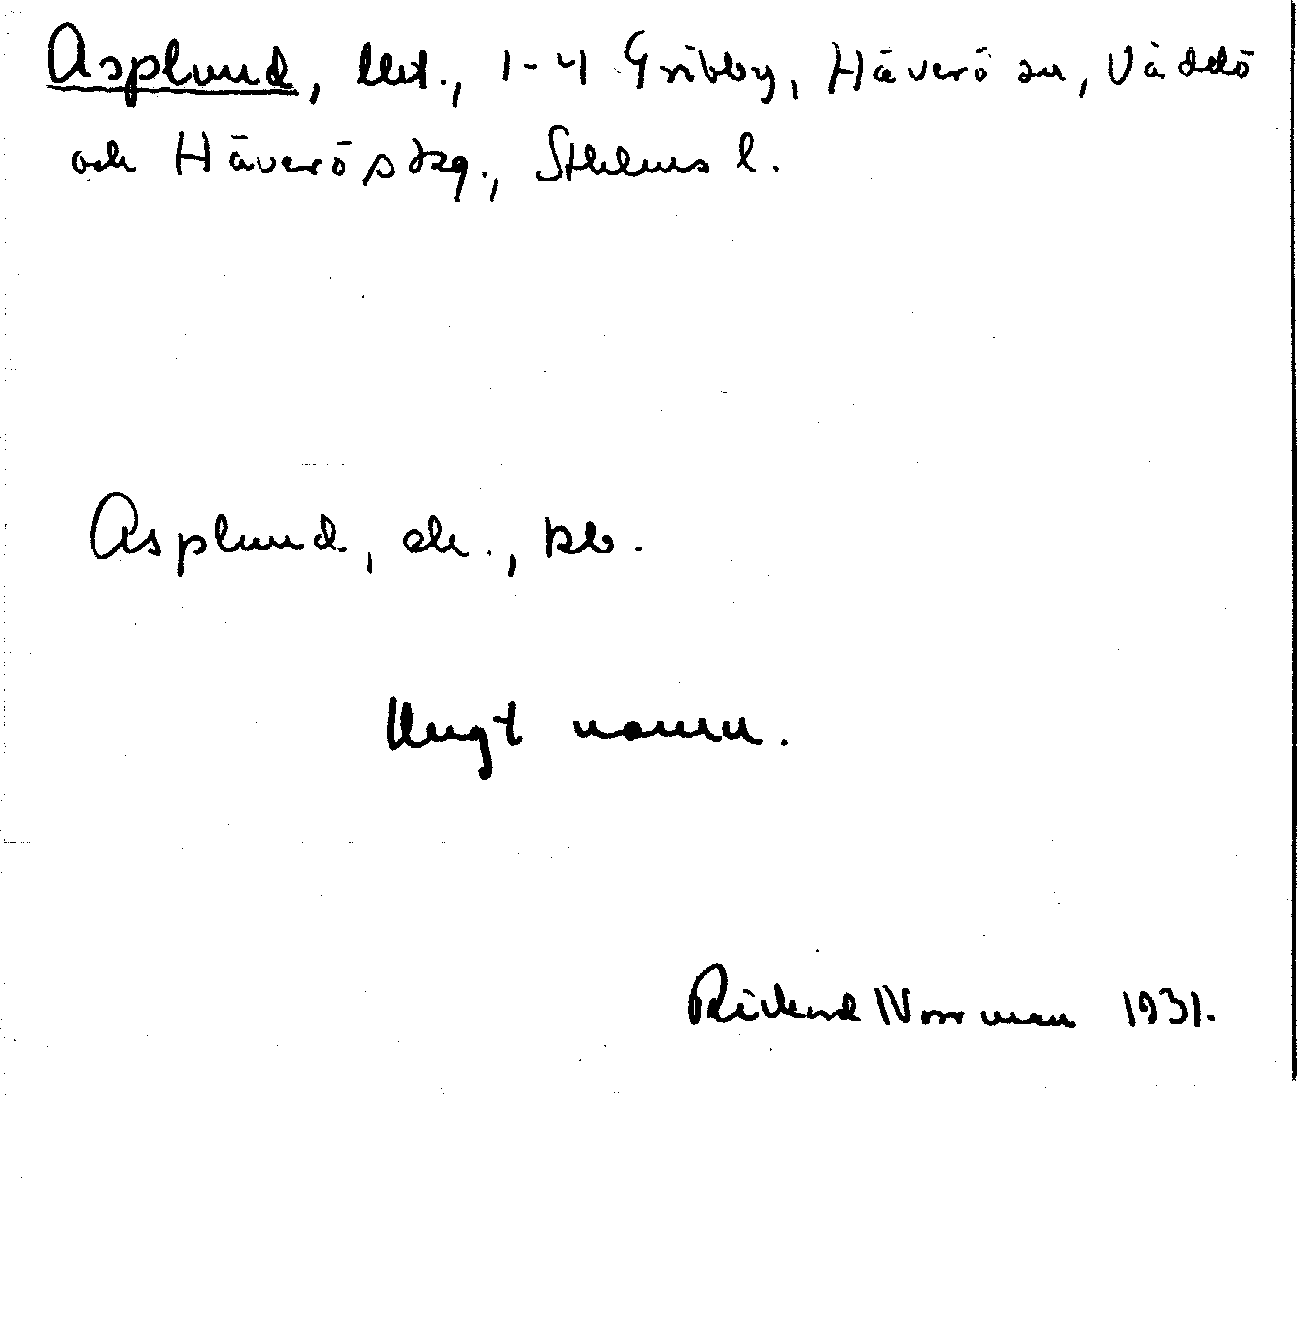 Asplund, Utj., 1-4 Gribby, Häverö sn, Väddö
och Häverö skg., Sthlms l.
Asplund, ak., kb.
Ungt namn.
Rickard Norrman 1931.